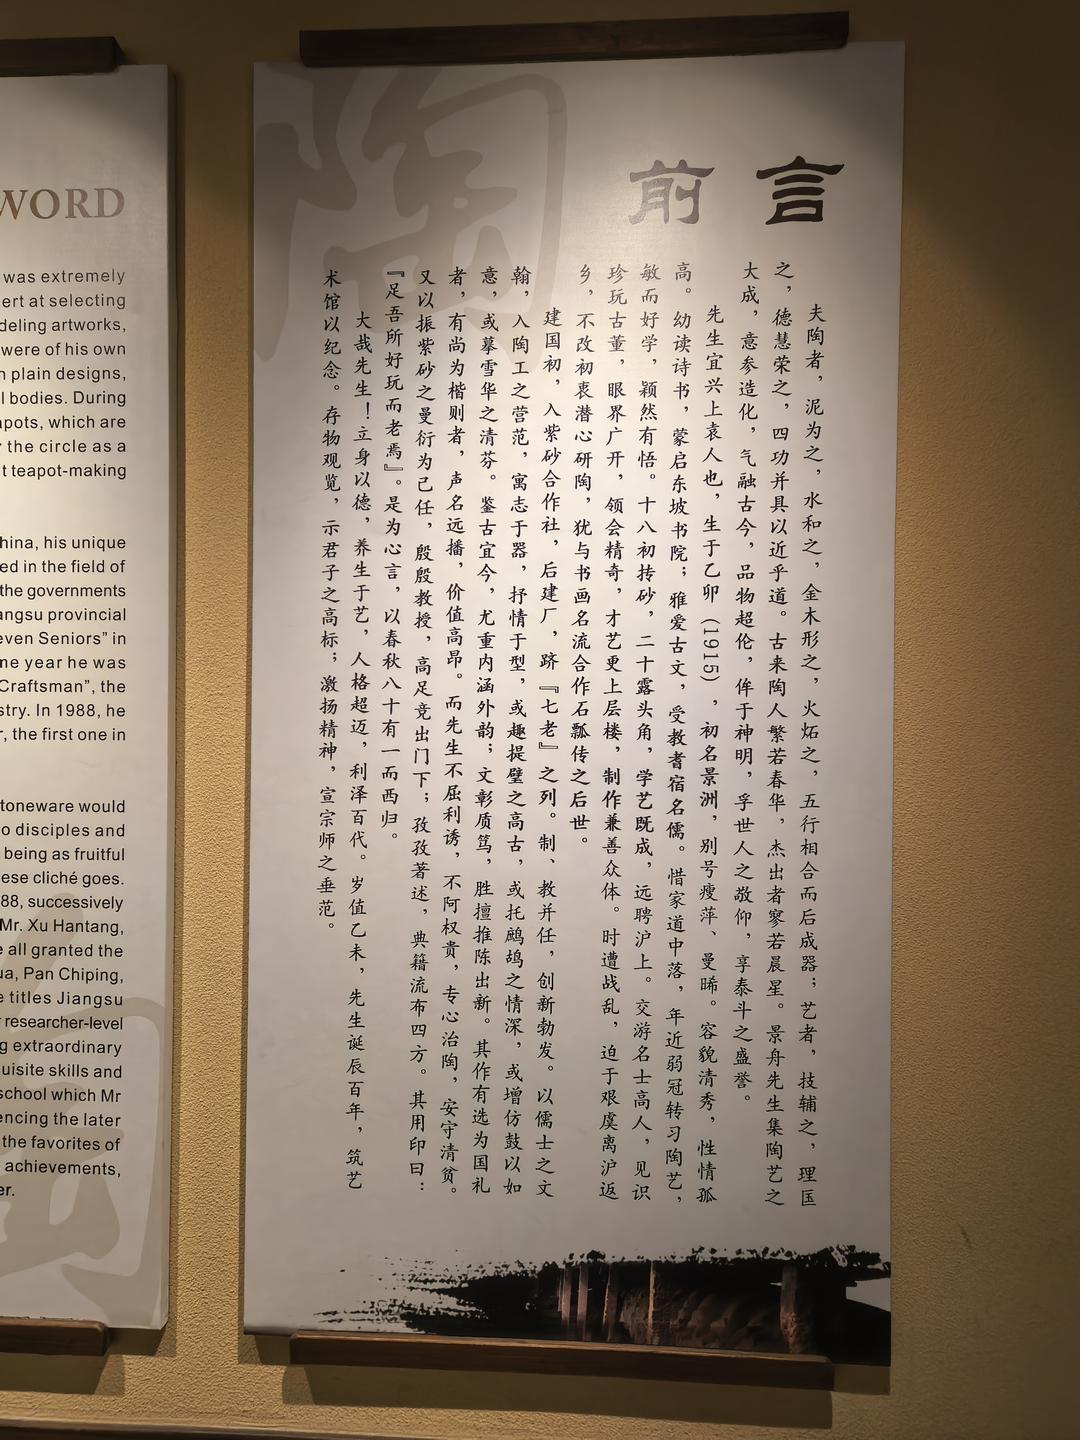 WORD
was extremely
ert at selecting
deling artworks,
were of his own
n plain designs,
l bodies. During
apots, which are
y the circle as a
t teapot-making
hina, his unique
ed in the field of
the governments
angsu provincial
even Seniors” in
ne year he was
Craftsman”, the
stry. In 1988, he
r, the first one in
toneware would
o disciples and
being as fruitful
ese cliché goes.
88, successively
Mr. Xu Hantang,
e all granted the
ua, Pan Chiping,
e titles Jiangsu
r researcher-level
g extraordinary
uisite skills and
school which Mr
encing the later
the favorites of
achievements,
er.
前言
夫陶者，泥为之，水和之，金木形之，火炻之，五行相合而后成器；艺者，技辅之，理匡
之，德慧荣之，四功并具以近乎道。古来陶人繁若春华，杰出者寥若晨星。景舟先生集陶艺之
大成，意参造化，气融古今，品物超伦，侔于神明，孚世人之敬仰，享泰斗之盛誉。
先生宜兴上袁人也，生于乙卯（1915），初名景洲，别号瘦萍、曼晞。容貌清秀，性情孤
高。幼读诗书，蒙启东坡书院；雅爱古文，受教耆宿名儒。惜家道中落，年近弱冠转习陶艺，
敏而好学，颖然有悟。十八初抟砂，二十露头角，学艺既成，远聘沪上。交游名士高人，见识
珍玩古董，眼界广开，领会精奇，才艺更上层楼，制作兼善众体。时遭战乱，迫于艰虞离沪返
乡，不改初衷潜心研陶，犹与书画名流合作石瓢传之后世。
建国初，入紫砂合作社，后建厂，跻『七老』之列。制、教并任，创新勃发。以儒士之文
翰，入陶工之营范，寓志于器，抒情于型，或趣提璧之高古，或托鹧鸪之情深，或增仿鼓以如
意，或摹雪华之清芬。鉴古宜今，尤重内涵外韵；文彰质笃，胜擅推陈出新。其作有选为国礼
者，有尚为楷则者，声名远播，价值高昂。而先生不屈利诱，不阿权贵，专心治陶，安守清贫。
又以振紫砂之曼衍为己任，殷殷教授，高足竞出门下；孜孜著述，典籍流布四方。其用印曰：
『足吾所好玩而老焉』。是为心言，以春秋八十有一而西归。
大哉先生！立身以德，养生于艺，人格超迈，利泽百代。岁值乙未，先生诞辰百年，筑艺
术馆以纪念。存物观览，示君子之高标；激扬精神，宣宗师之垂范。